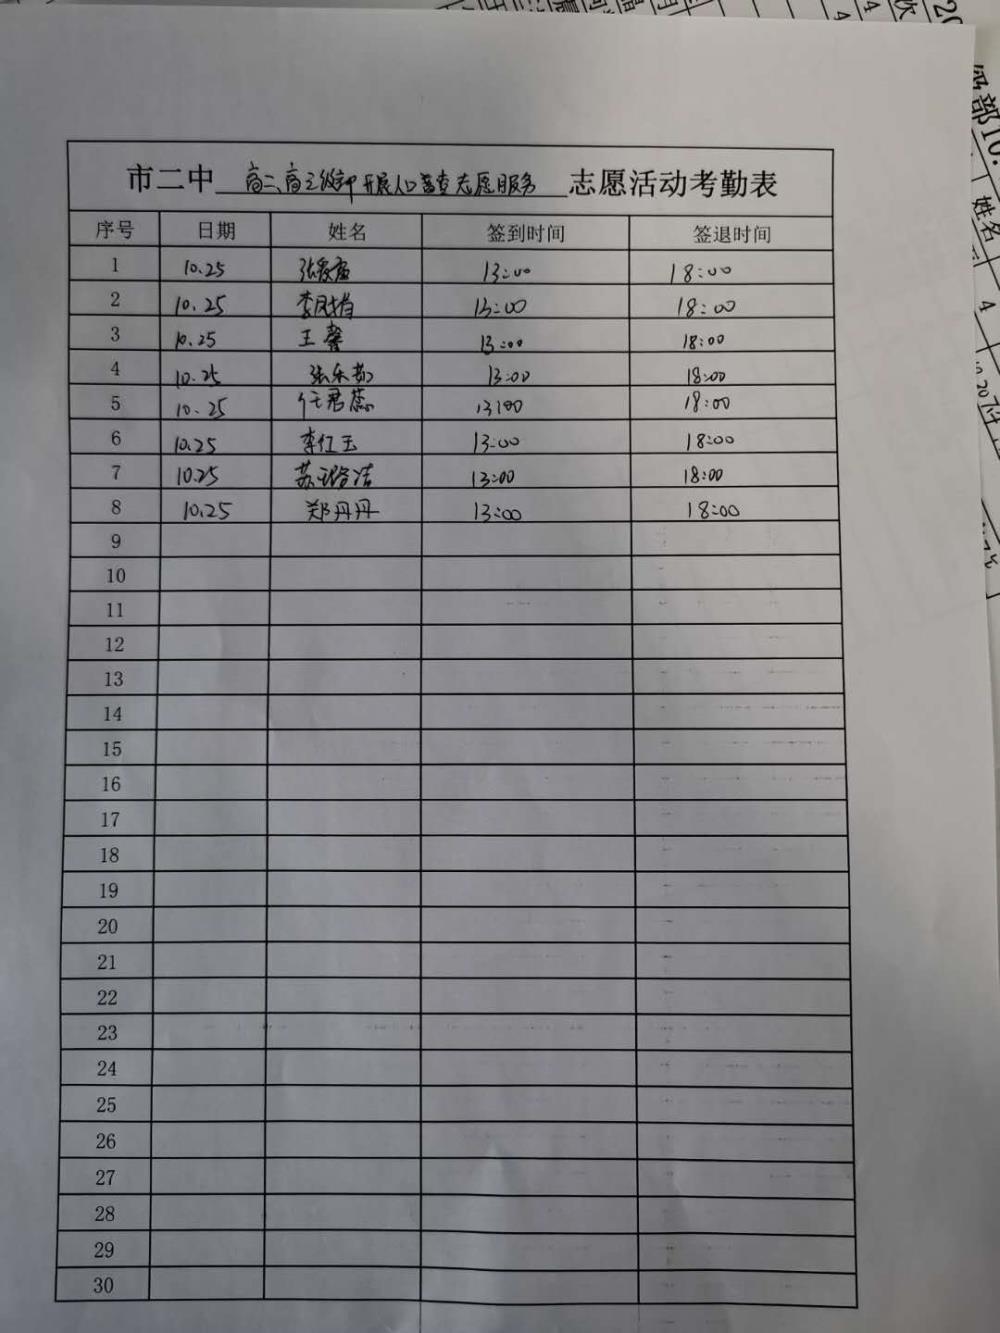 市二中 高二、高三级部开展人口普查志愿服务 志愿活动考勤表
序号 日期 姓名 签到时间 签退时间
1 10.25 张爱 13:00 18:00
2 10.25 李凤 13:00 18:00
3 10.25 王馨 13:00 18:00
4 10.25 张乐 13:00 18:00
5 10.25 任君蕊 13:00 18:00
6 10.25 李红玉 13:00 18:00
7 10.25 苏璐洁 13:00 18:00
8 10.25 郑丹丹 13:00 18:00
9
10
11
12
13
14
15
16
17
18
19
20
21
22
23
24
25
26
27
28
29
30
姓名